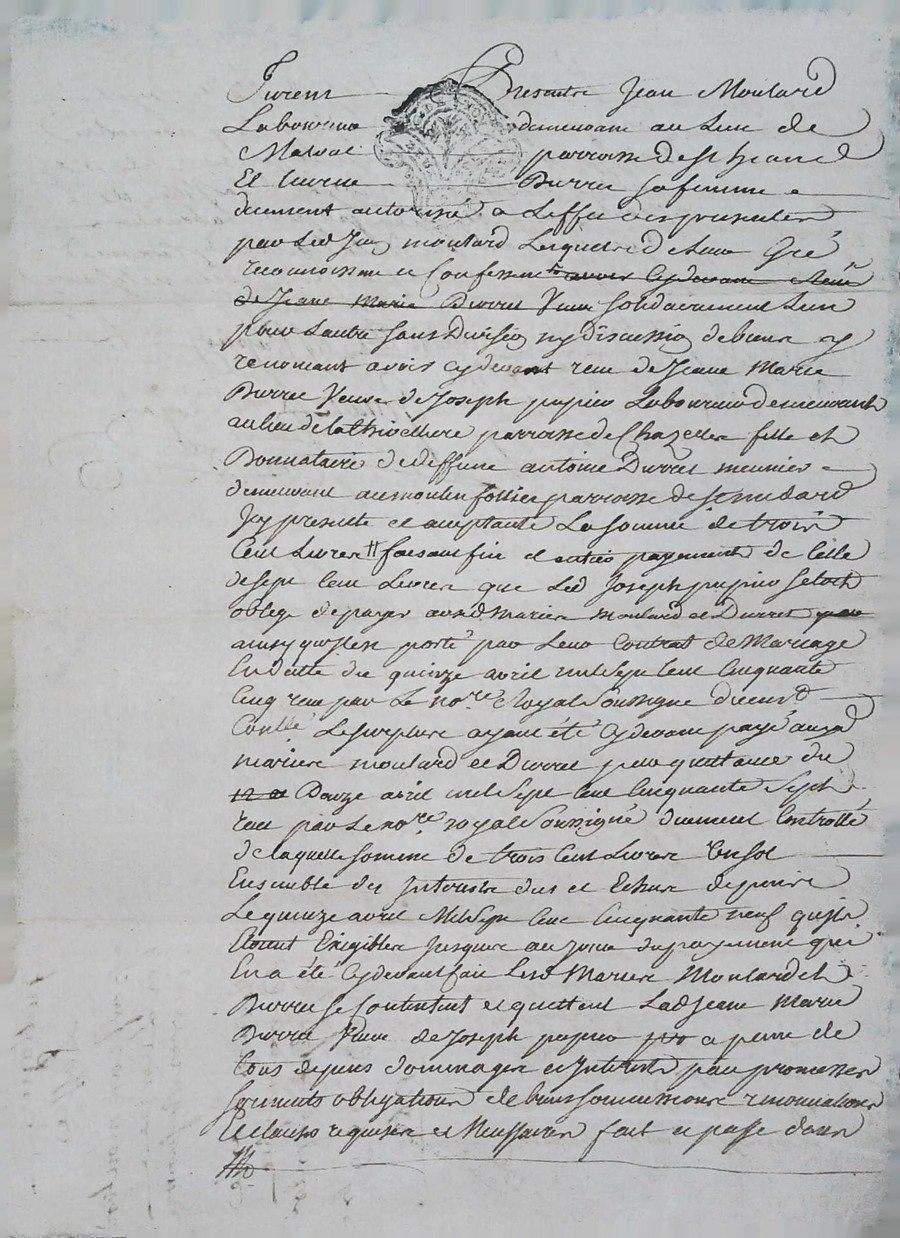 Furent Presents Jean Moulard
Laboureur demeurant au Lieu de
parroisse de st
Et Durret sa femme
duement autorisé a Leffet des presentes
par Led Jean moulard Lesquels de Leur Gré
reconnoissent et Confessent avoir cydevant
de Jeane Marie Durret Veuve solidairement Lun
pour Lautre sans Division ny discussion de biens y
renoncant avoir cydevant receu de Jeane Marie
Durret Veuve de Joseph pupier Laboureur demeurante
au lieu de parroisse de Chazelles fille et
Donnataire de deffunt antoine Durret meunier
demeurant au moulin parroisse de st medard
Icy presente et acceptante La somme de trois
Cent Livres faisant fin et entier payement de Celle
de sept Cent Livres que Led Joseph pupier setoit
obligé de payer auxd mariés moulard et Durret
ainsy quil est porté par Leur Contrat de Mariage
En datte du quinze avril mil sept Cent Cinquante
Cinq receu par Le nore Royal soussigné duement
Contlé Le surplus ayant été cydevant payé auxd
mariés moulard et Durret par quittance du
Douze avril mil sept Cent Cinquante sept
receu par Le nore royal soussigné duement Controllé
de laquelle somme de trois Cent Livres
Ensemble des Interests dus et Echus depuis
Le quinze avril Mil sept Cent Cinquante neuf quils
étoient Exigibles Jusques au Jour du payement qui
En a été cydevant fait Lesd Mariés Moulard et
Durret se Contentent et quittent Lad Jeane Marie
Durret Veuve de Joseph pupier a peine de
tous depens dommages et Interests par promesses
serments obligations de biens soumissions renonciations
et clauses requises et Necessaires fait et passé dans